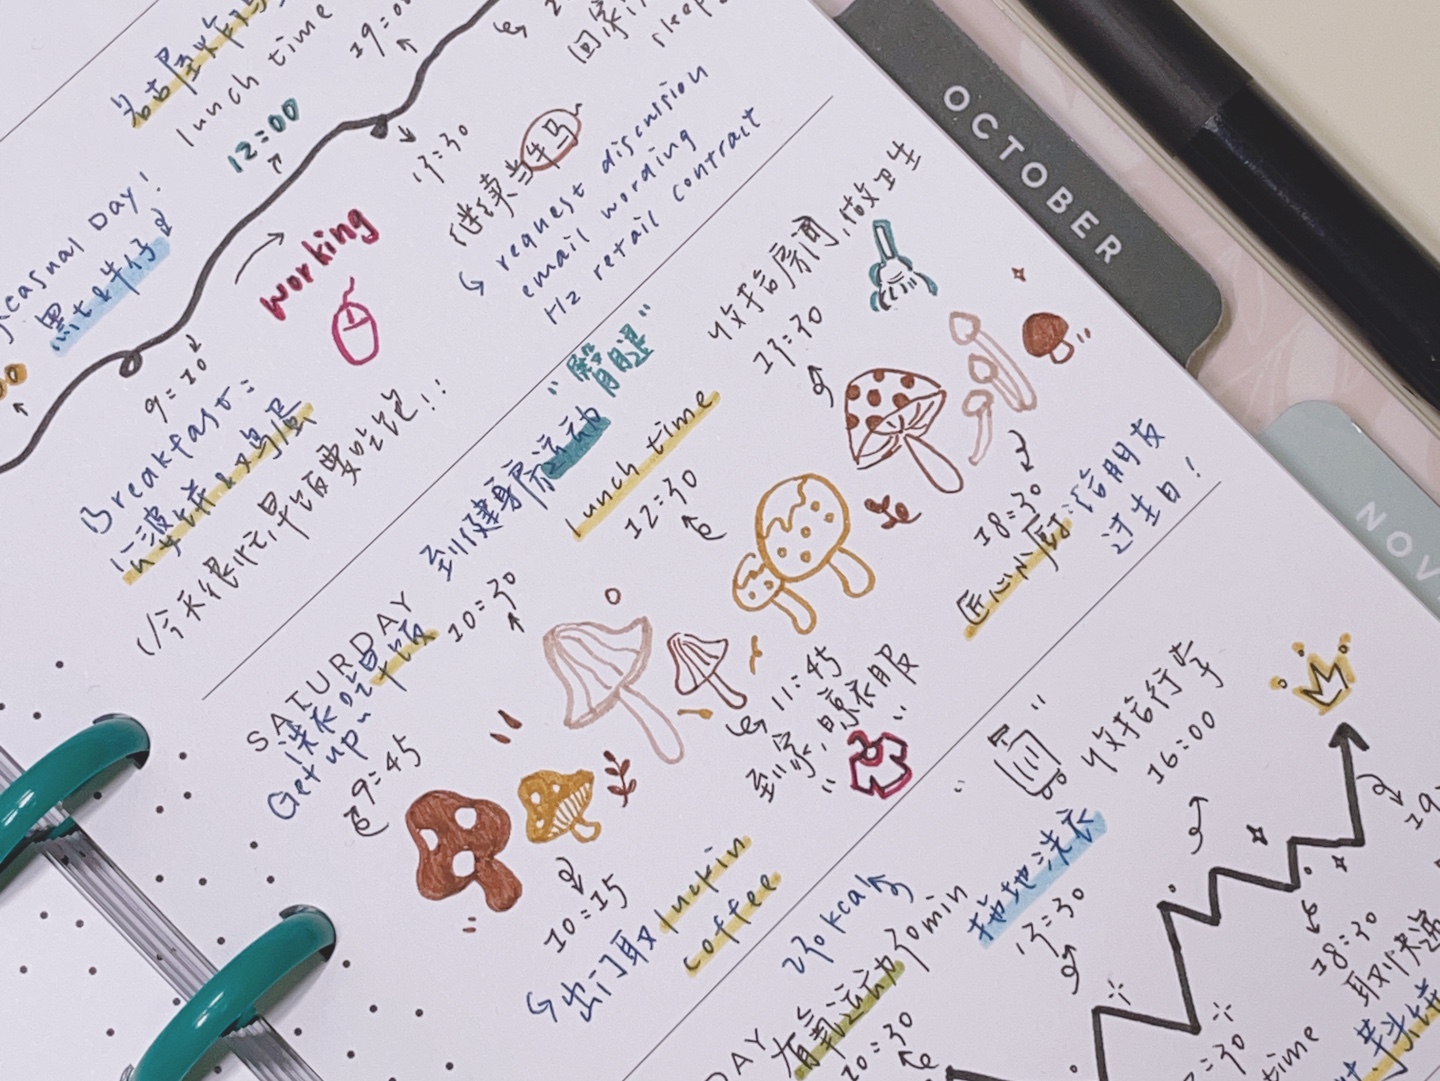 OCTOBER
NOV
lunch time
12:00
回家
sleep
casual Day!
黑t&牛仔
working
13:30
继续当牛马
request discussion
email wording
Hz retail contract
9:10
Breakfast:
&鸡蛋
今天很忙,早饭要吃饱!!
SATURDAY
洗衣吃早饭
Get up~
9:45
10:15
出门取luckin
coffee
10:30
到健身房运动
"臀腿"
11:45
到家,晾衣服
lunch time
12:30
13:30
收拾房间,做卫生
18:30
匠心小厨:给朋友
过生日!
DAY
有氧运动30min
230kcal
10:30
拖地洗衣
13:30
收拾行李
16:00
18:30
取快递
time